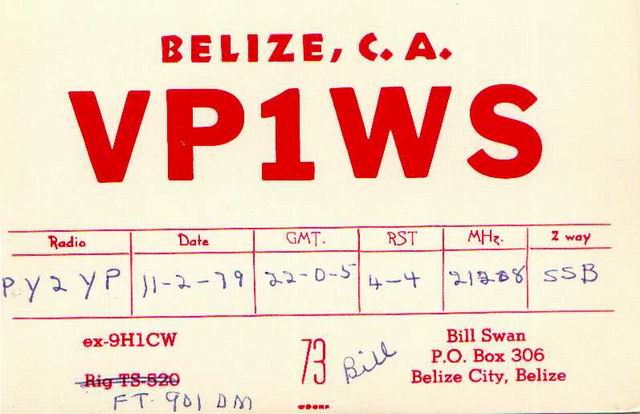 BELIZE, C. A.
VP1WS
Radio Date GMT. RST MHz. 2 way
PY2YP 11-2-79 22-0-5 4-4 21208 SSB
ex-9H1CW
Rig TS-520
FT-901 DM
73 Bill
Bill Swan
P.O. Box 306
Belize City, Belize